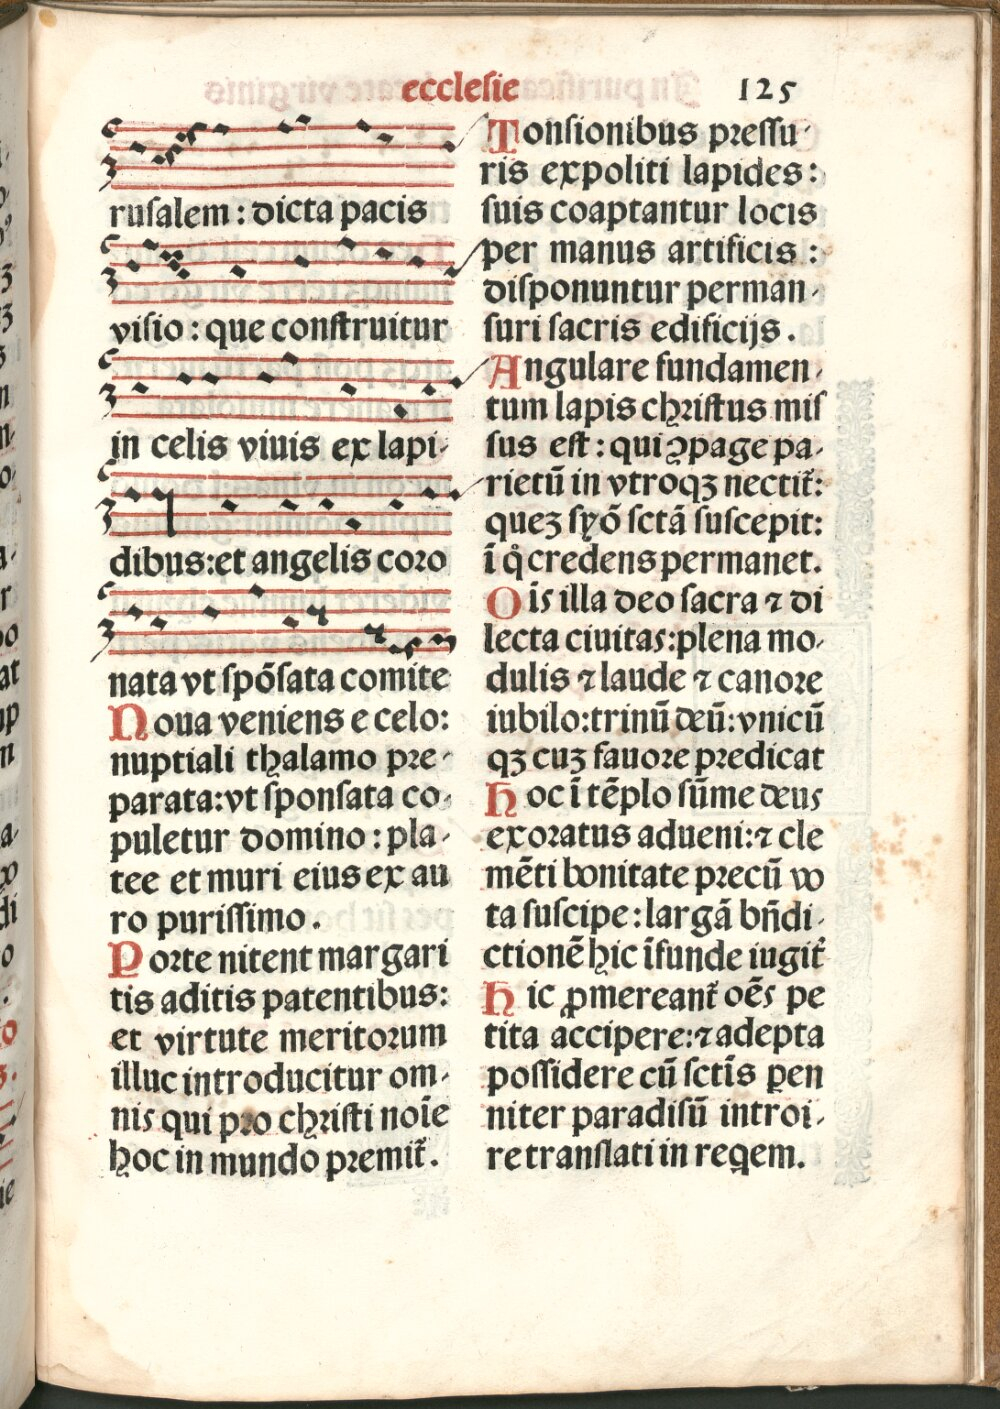 ecclesie 125
rusalem : dicta pacis
visio : que construitur
in celis viuis ex lapi-
dibus:et angelis coro
nata vt spõsata comite
Noua veniens e celo:
nuptiali thalamo pre-
parata:vt sponsata co-
puletur domino : pla-
tee et muri eius ex au
ro purissimo.
Porte nitent margari
tis aditis patentibus:
et virtute meritorum
illuc introducitur om-
nis qui pro christi noīe
hoc in mundo premit̃.
Tonsionibus pressu-
ris expoliti lapides :
suis coaptantur locis
per manus artificis :
disponuntur perman-
suri sacris edificijs.
Angulare fundamen-
tum lapis christus mis
sus est : qui ꝯpage pa-
rietū in vtroqꝫ nectit̃:
queꝫ syõ sctā suscepit:
ī q̊ credens permanet.
Oīs illa deo sacra ⁊ di
lecta ciuitas:plena mo-
dulis ⁊ laude ⁊ canore
iubilo:trinū deū:vnicū
qꝫ cuꝫ fauore predicat
Hoc ī tēplo sūme deus
exoratus adueni:⁊ cle
mēti bonitate precū vo
ta suscipe:largā bn̄di-
ctionē hic īfunde iugit̃
Hic ꝓmereant̃ oēs pe
tita accipere:⁊ adepta
possidere cū sctīs ꝑen
niter paradisū introi-
re translati in reqem.